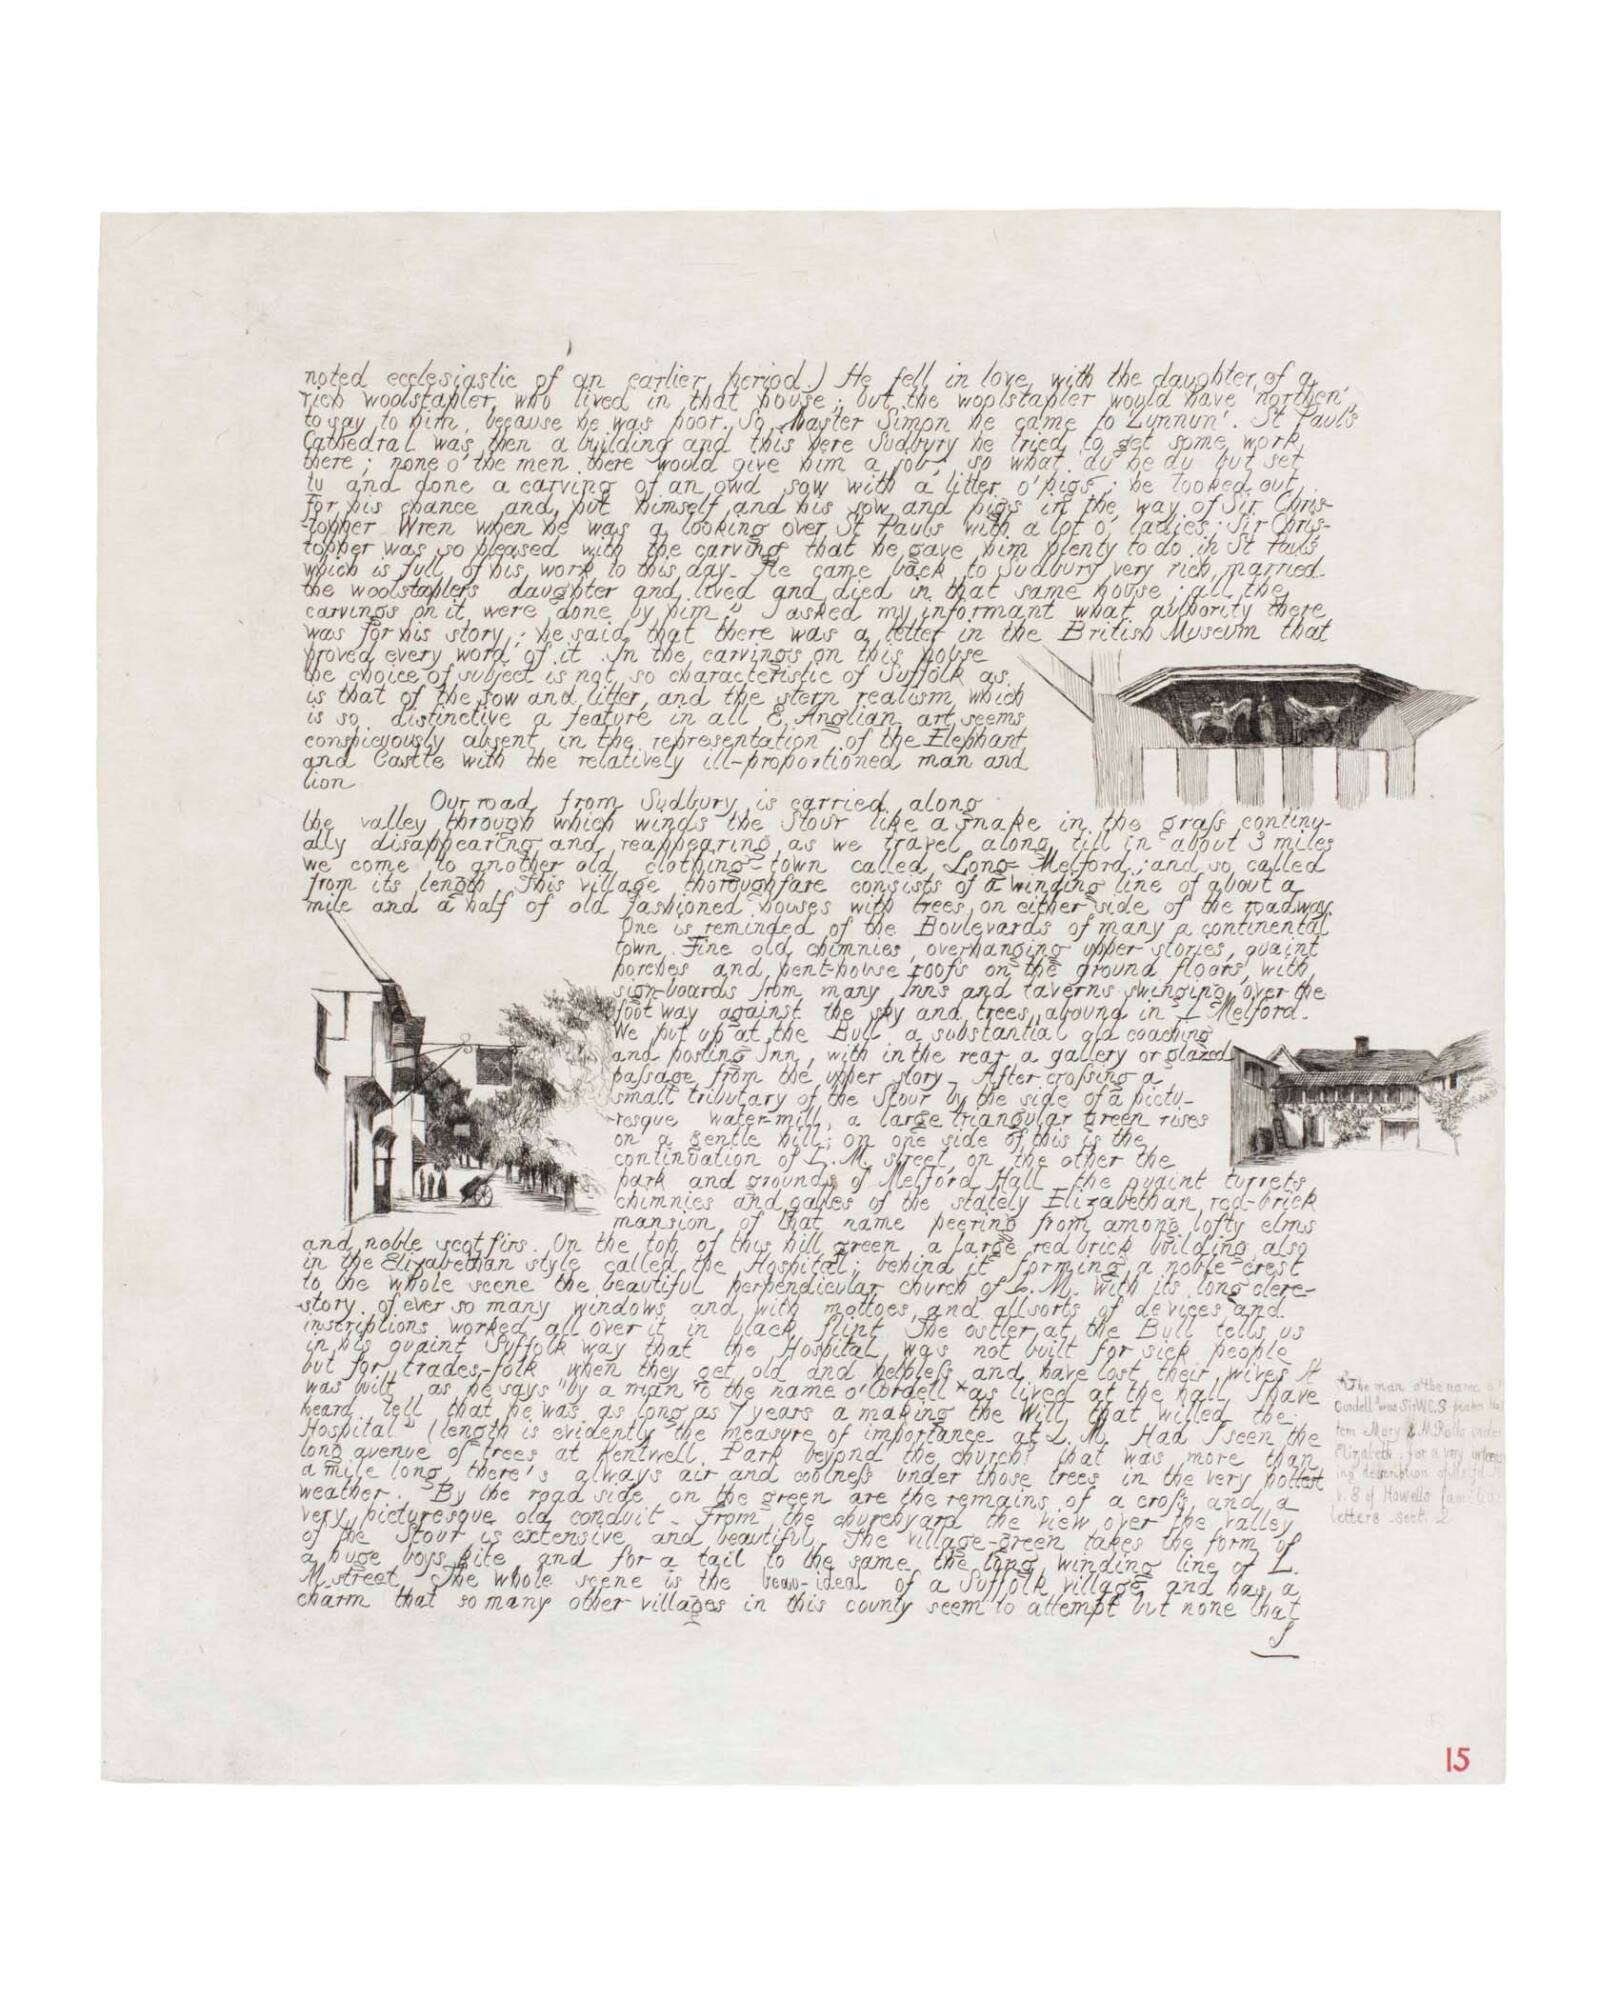 noted ecclesiastic of an earlier period.) He fell in love with the daughter of a
rich woolstapler who lived in that house; but the woolstapler would have 'northen'
to say to him, because he was poor. So Master Simon he came to Lunnun'. St Paul's
Cathedral was then a building and this here Sudbury he tried to get some work
there; none o' the men there would give him a job, so what du he du but set
tu and done a carving of an owd sow with a litter o' pigs; he looked out
for his chance and put himself and his sow and pigs in the way of Sir Chris-
-topher Wren when he was a looking over St Pauls with a lot o' ladies; Sir Chris-
topher was so pleased with the carving that he gave him plenty to do in St Pauls
which is full of his work to this day. He came back to Sudbury very rich, married
the woolstaplers daughter and lived and died in that same house; all the
carvings on it were done by him." I asked my informant what authority there
was for his story; he said that there was a letter in the British Museum that
proved every word of it. In the carvings on this house
the choice of subject is not so characteristic of Suffolk as
is that of the sow and litter, and the stern realism which
is so distinctive a feature in all E. Anglian art seems
conspicuously absent in the representation of the Elephant
and Castle with the relatively ill-proportioned man and
lion
Our road from Sudbury is carried along
the valley through which winds the Stour like a snake in the graſs continu-
ally disappearing and reappearing as we travel along till in about 3 miles
we come to another old clothing-town called Long-Melford; and so called
from its length. This village thoroughfare consists of a winding line of about a
mile and a half of old fashioned houses with trees on either side of the roadway.
One is reminded of the Boulevards of many a continental
town. Fine old chimnies, overhanging upper stories, quaint
porches and pent-house roofs on the ground floors, with
sign-boards from many Inns and taverns swinging over the
foot way against the sky and trees, abound in L Melford.
We put up at the Bull a substantial old coaching
and posting Inn, with in the rear a gallery or glazed
paſsage from the upper story. After croſsing a
small tributary of the Stour by the side of a pictu-
-resque water-mill, a large triangular Green rises
on a gentle hill; on one side of this is the
continuation of L. M. street, on the other the
park and grounds of Melford Hall the quaint turrets
chimnies and gables of the stately Elizabethan red-brick
mansion of that name peering from among lofty elms
and noble scot firs. On the top of this hill green a large red brick building also
in the Elizabethan style called the Hospital; behind it forming a noble crest
to the whole scene the beautiful perpendicular church of L. M. with its long clere-
-story of ever so many windows and with mottoes and allsorts of devices and
inscriptions worked all over it in black flint. The ostler at the Bull tells us
in his quaint Suffolk way that the Hospital was not built for sick people
but for trades-folk when they get old and helpleſs and have lost their wives It
was built as he says "by a man o the name o' Cordell * as lived at the hall, I have
heard tell that he was as long as 7 years a making the Will that willed the
Hospital" (length is evidently the measure of importance at L. M. Had I seen the
long avenue of trees at Kentwell Park beyond the church? that was more than
a mile long, there's always air and coolneſs under those trees in the very hottest
weather. By the road side on the green are the remains of a croſs and a
very picturesque old conduit. From the churchyard the view over the valley
of the Stour is extensive and beautiful. The village-green takes the form of
a huge boys kite and for a tail to the same the long winding line of L.
M. street. The whole scene is the beau-ideal of a Suffolk village and has a
charm that so many other villages in this county seem to attempt but none that
I
* The man o' the name o'
Cordell was Sir W.C.
tem Mary & M. Rolls under
Elizabeth. for a very interest
ing description of
v. 8 of Howells familiar
letters sect. 2
15